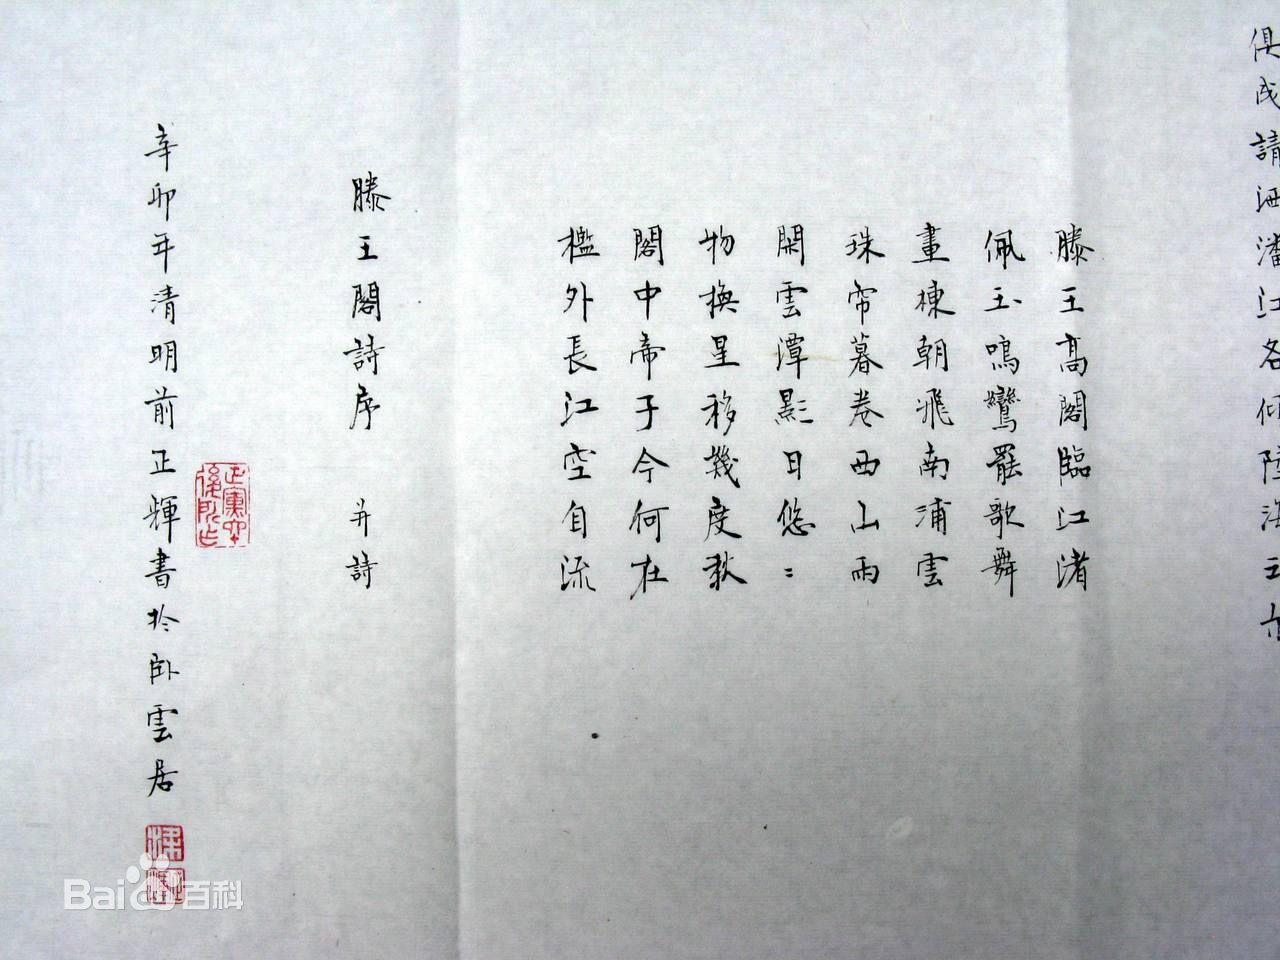 俱成請洒潘江各傾陸海云尓
滕王高閣臨江渚
佩玉鳴鸞罷歌舞
畫棟朝飛南浦雲
珠帘暮卷西山雨
閑雲潭影日悠〻
物換星移幾度秋
閣中帝子今何在
檻外長江空自流
滕王閣詩序 并詩
辛卯年清明前正輝書於卧雲居
Baidu百科